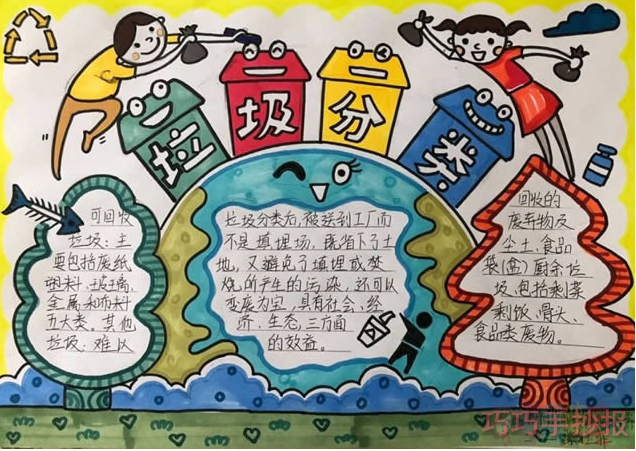 垃圾分类
可回收
垃圾：主
要包括废纸
塑料、玻璃、
金属和布料
五大类。其他
垃圾：难以
垃圾分类后，被送到工厂而
不是填埋场，既省下了土
地，又避免了填埋或焚
烧所产生的污染，还可以
变废为宝，具有社会、经
济、生态，三方面
的效益。
回收的
废弃物及
尘土、食品
袋(盒)厨余垃
圾，包括剩菜
剩饭、骨头、
食品类废物。
巧巧手抄报